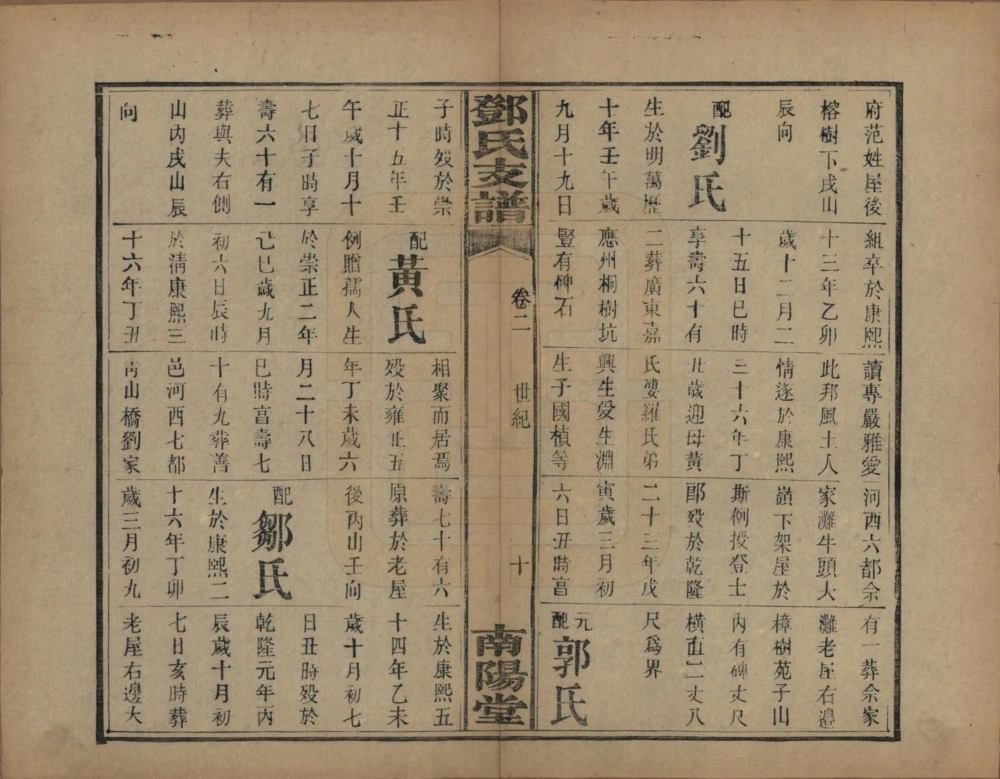 府范姓屋後
榕樹下戌山
辰向
配劉氏
生於明萬曆
十年壬午歲
九月十九日
子時歿於崇
正十五年壬
午歲十月十
七日子時享
壽六十有一
葬與夫右側
山內戌山辰
向
組卒於康熙
十三年乙卯
歲十二月二
十五日巳時
享壽六十有
二葬廣東嘉
應州桐樹坑
豎有碑石
配黃氏
例贈孺人生
於崇正二年
己巳歲九月
初六日辰時
於清康熙三
十六年丁丑
讀專嚴雅愛
此邦風土人
情遂於康熙
三十六年丁
丑歲迎母黃
氏婆羅氏弟
興生爰生淵
生子國楨等
相聚而居焉
歿於雍正五
年丁未歲六
月二十八日
巳時亯壽七
十有九葬善
邑河西七都
靑山橋劉家
河西六都佘
家灘牛頭大
嶺下架屋於
斯例授登士
郎歿於乾隆
二十三年戊
寅歲三月初
六日丑時亯
壽七十有六
原葬於老屋
後丙山壬向
配鄒氏
生於康熙二
十六年丁卯
歲三月初九
有一葬佘家
灘老屋右邉
樟樹苑子山
內有碑丈尺
橫直二丈八
尺爲界
元配郭氏
生於康熙五
十四年乙未
歲十月初七
日丑時歿於
乾隆元年丙
辰歲十月初
七日亥時葬
老屋右邊大
鄧氏支譜
卷二
世紀
十
南陽堂